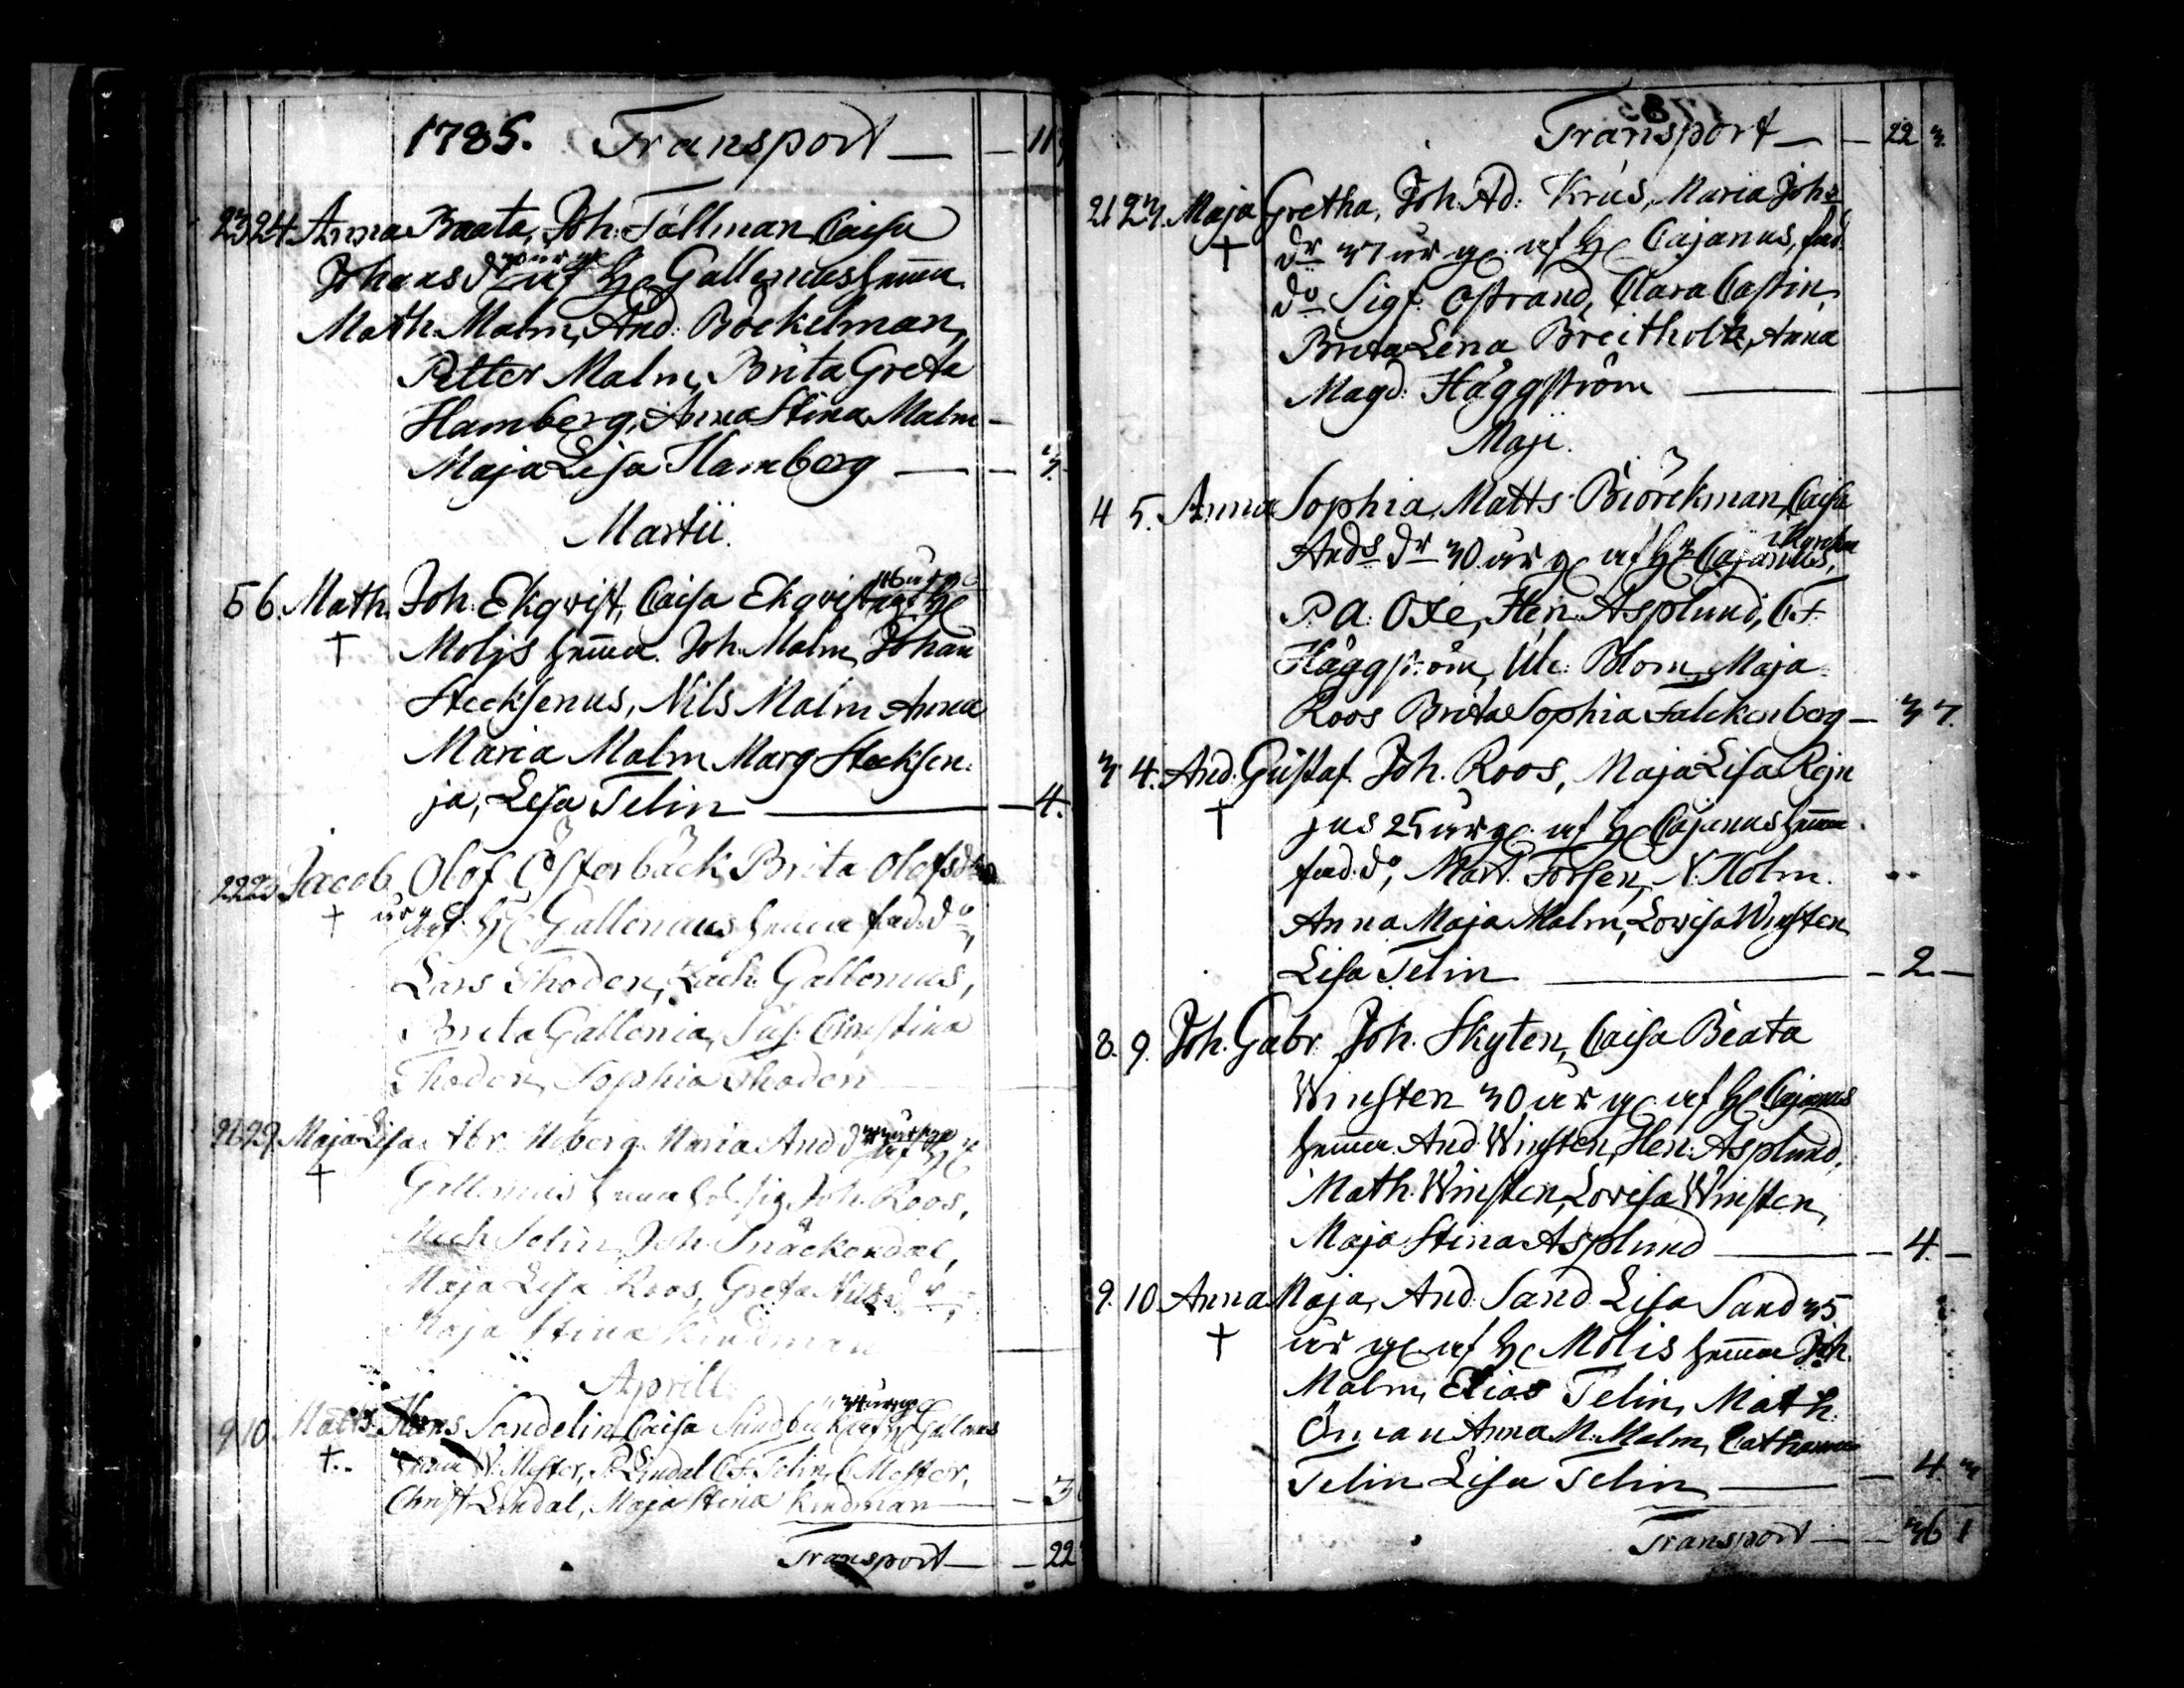 1785. Transport — — 11
23 24. Anna Beata, Joh: Tällman Caisa
Johansdr af H Gallenius hemma
Math. Malm, And: Böckelman,
Petter Malm, Brita Greta
Hamberg, Anna Stina Malm —
Maja Lisa Hamberg — — 3.
Martii.
5 6. Math. Joh. Ekqvist, Caisa Ekqvist
† Molijs hemma. Joh. Malm, Johan
Stecksenus, Nils Malm Anna
Maria Malm Marg Stecksen:
ja, Lisa Telin — 4.
22 Jacob, Olof Österbäck Brita Olofsdr
† år g. af H Gallenius hemma fad. do,
Lars Thoden, Zach. Gallenius,
Brita Gallenia, Sus. Christina
Thoden, Sophia Thoden
29. Maja Lisa Abr. Moberg Maria And dr
† Gallenius Joh. Roos,
Mich Selin, Joh. Snäckendal,
Maja Lisa Roos, Greta Nilsdr,
Maja Stina Kindman
Aprill.
9 10 Matts Hans Sandelin Caisa Sundbäck af H Galenus
† hemma N. Mester, P. Lindal C.F. Telin, C Mester,
Christ Lindal, Maja Stina Kindman — 3
Transport — — 22
Transport — — 22 3.
21 23. Maja Gretha, Joh. Ad: Krus, Maria Johs
† dr 37 år g. af H Cajanus, fad.
do Sigf. Ostrand, Clara Castrin,
Brita Lena Breitholtz, Anna
Magd: Häggström —
Maji.
4 5. Anna Sophia, Matts Biörckman, Caisa
Ands dr 30 år g af H Cajanus,
P. A. Oxe, Hen: Asplund, C.F.
Häggström, Ul: Blom, Maja
Roos Brita Sophia Falckenberg — 3 7.
3 4. And. Gustaf. Joh. Roos, Maja Lisa Rejn
† jus 25 år g. af H Cajanus hemma.
fad. do, Mart. Forsen, N. Holm.
Anna Maja Malm, Lovisa Winsten
Lisa Telin — 2 —
8. 9. Joh. Gabr. Joh. Skyten, Caisa Beata
Winsten 30 år g. af H Cajanus
hemma And Winsten, Hen: Asplund,
Math. Winsten, Lovisa Winsten,
Maja Stina Asplund — 4. —
9. 10 Anna Maja, And. Sand Lisa Sand 35
† år g. af H Molis hemma Joh.
Malm, Elias Telin, Math.
Öman Anna M. Malm, Catharina
Telin Lisa Telin — 4 3
Transport — — 36 1